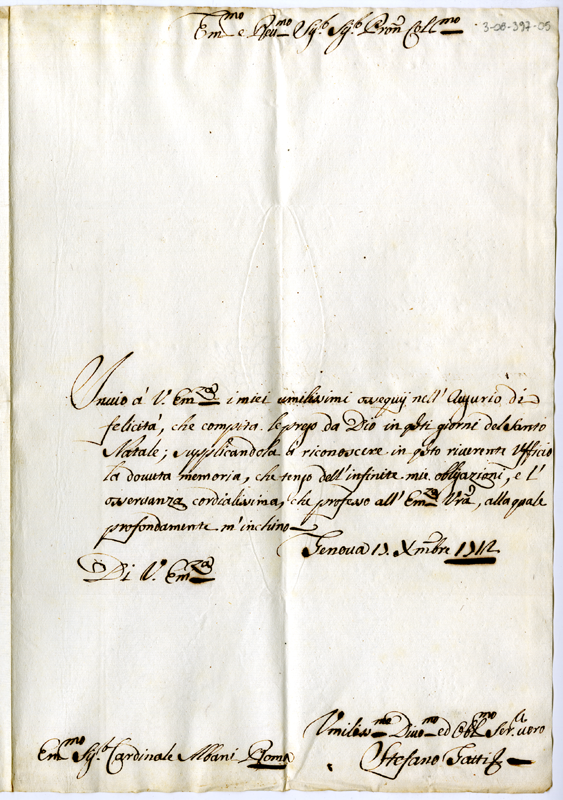 Em.mo e Reu.mo Sig.r Sig.r Pron Coll.mo
3-06-397-05
Inuio á V. Em.za i miei umilissimi ossequij nell' Augurio di
felicità, che compita le prego da Dio in q̃sti giorni del Santo
Natale; supplicandola à riconoscere in q̃sto riuerente Ufficio
la douuta memoria, che tengo dell' infinite mie obligazioni, e l'
osseruanza cordialissima, che professo all' Em.za Vrã, alla quale
profondamente m'inchino
Genoua Xmbre
Di V. Em.za
Vmiliss.mo Diuo.mo ed Obl.mo Ser. uero
Em.mo Sig.r Cardinale Albani Roma
Stefano